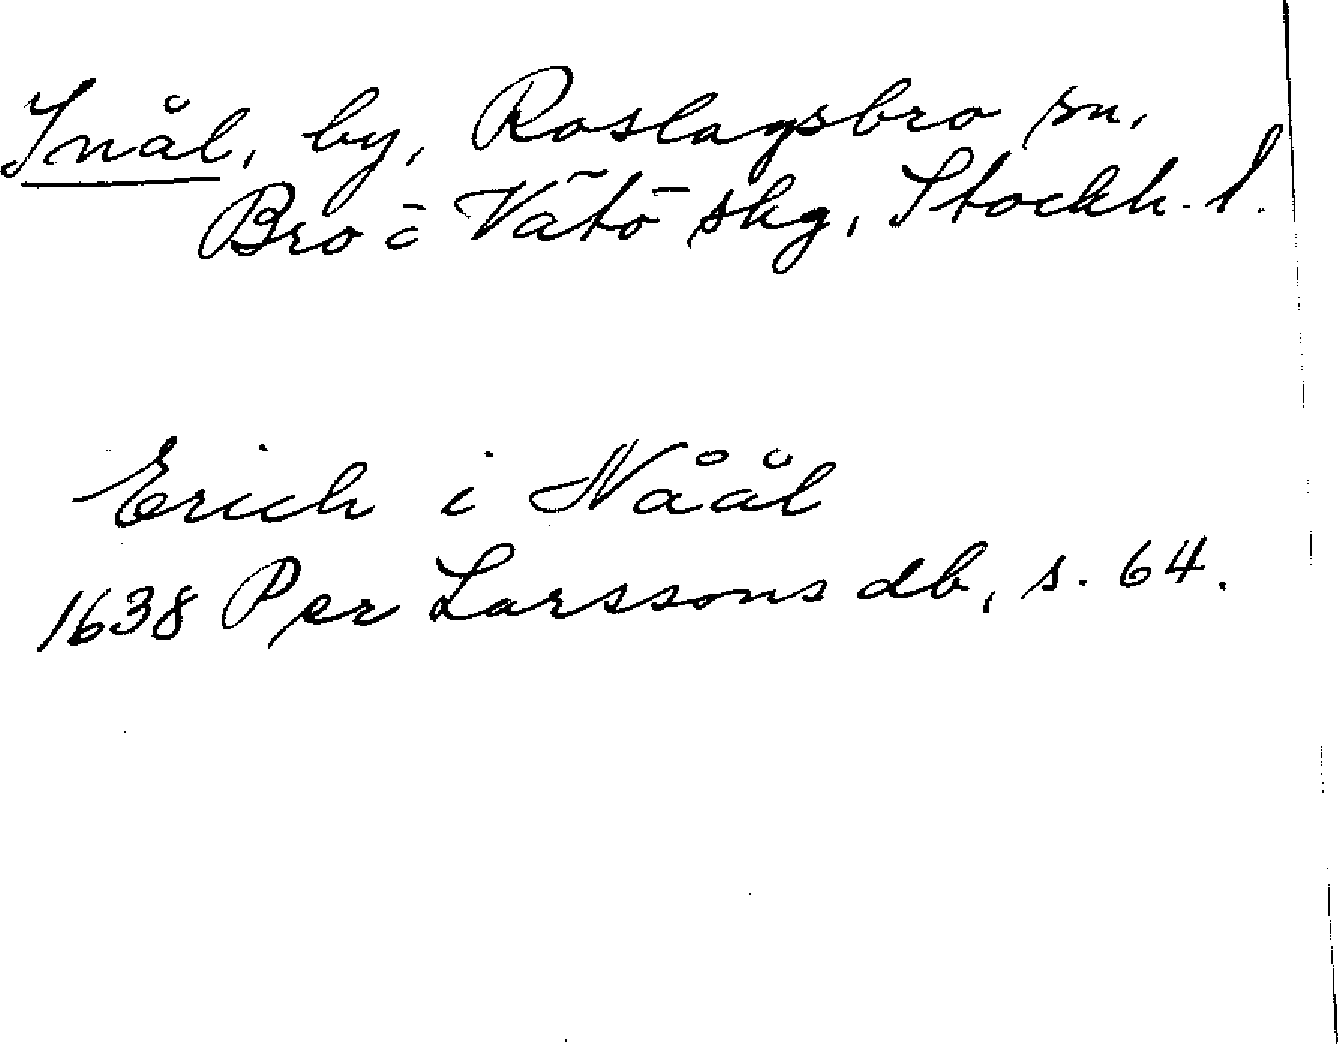 Inål, by, Roslagsbro sn,
Bro o Vätö skg, Stockh. l.
Erich i Nåål
1638 Per Larssons db, s. 64.